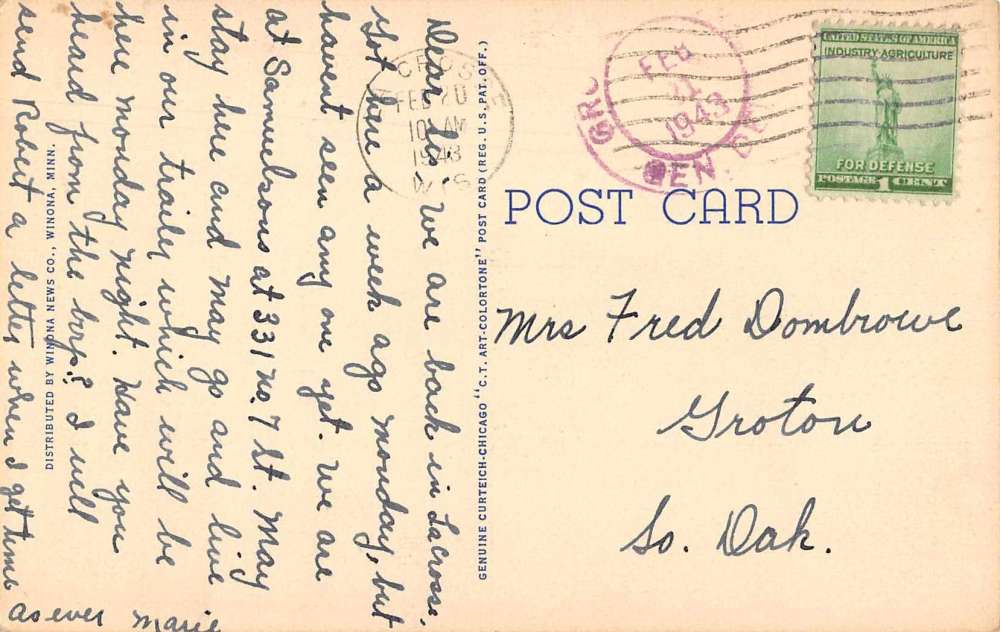 Dear Jo: We are back in Lacrosse.
Got here a week ago monday, but
havent seen any one yet. We are
at Samuelsons at 331 no. 7 st. May
stay here and may go and live
in our trailer which will be
here monday night. Have you
heard from the boys? I will
send Robert a letter when I get time
as ever Marie
DISTRIBUTED BY WINONA NEWS CO., WINONA, MINN.
GENUINE CURTEICH-CHICAGO "C.T. ART-COLORTONE" POST CARD (REG. U.S. PAT. OFF.)
CROSSE
FEB 20
10 AM
1943
WIS
GRO
FEB
21
1943
UNITED STATES OF AMERICA
INDUSTRY·AGRICULTURE
FOR DEFENSE
POSTAGE 1 CENT
POST CARD
Mrs Fred Dombrowe
Groton
So. Dak.